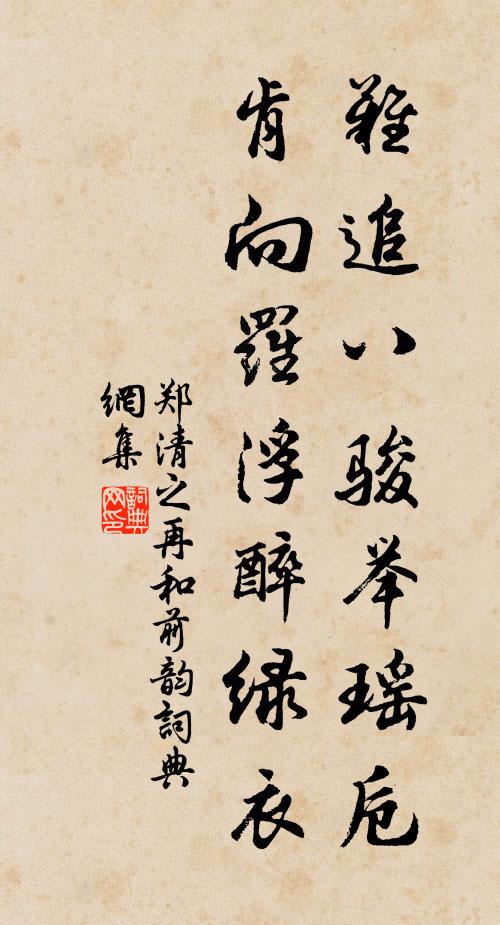 難追八骏举瑶卮
肯向羅浮醉緑衣
郑清之再和前韵詞典
網集
詞典
网印